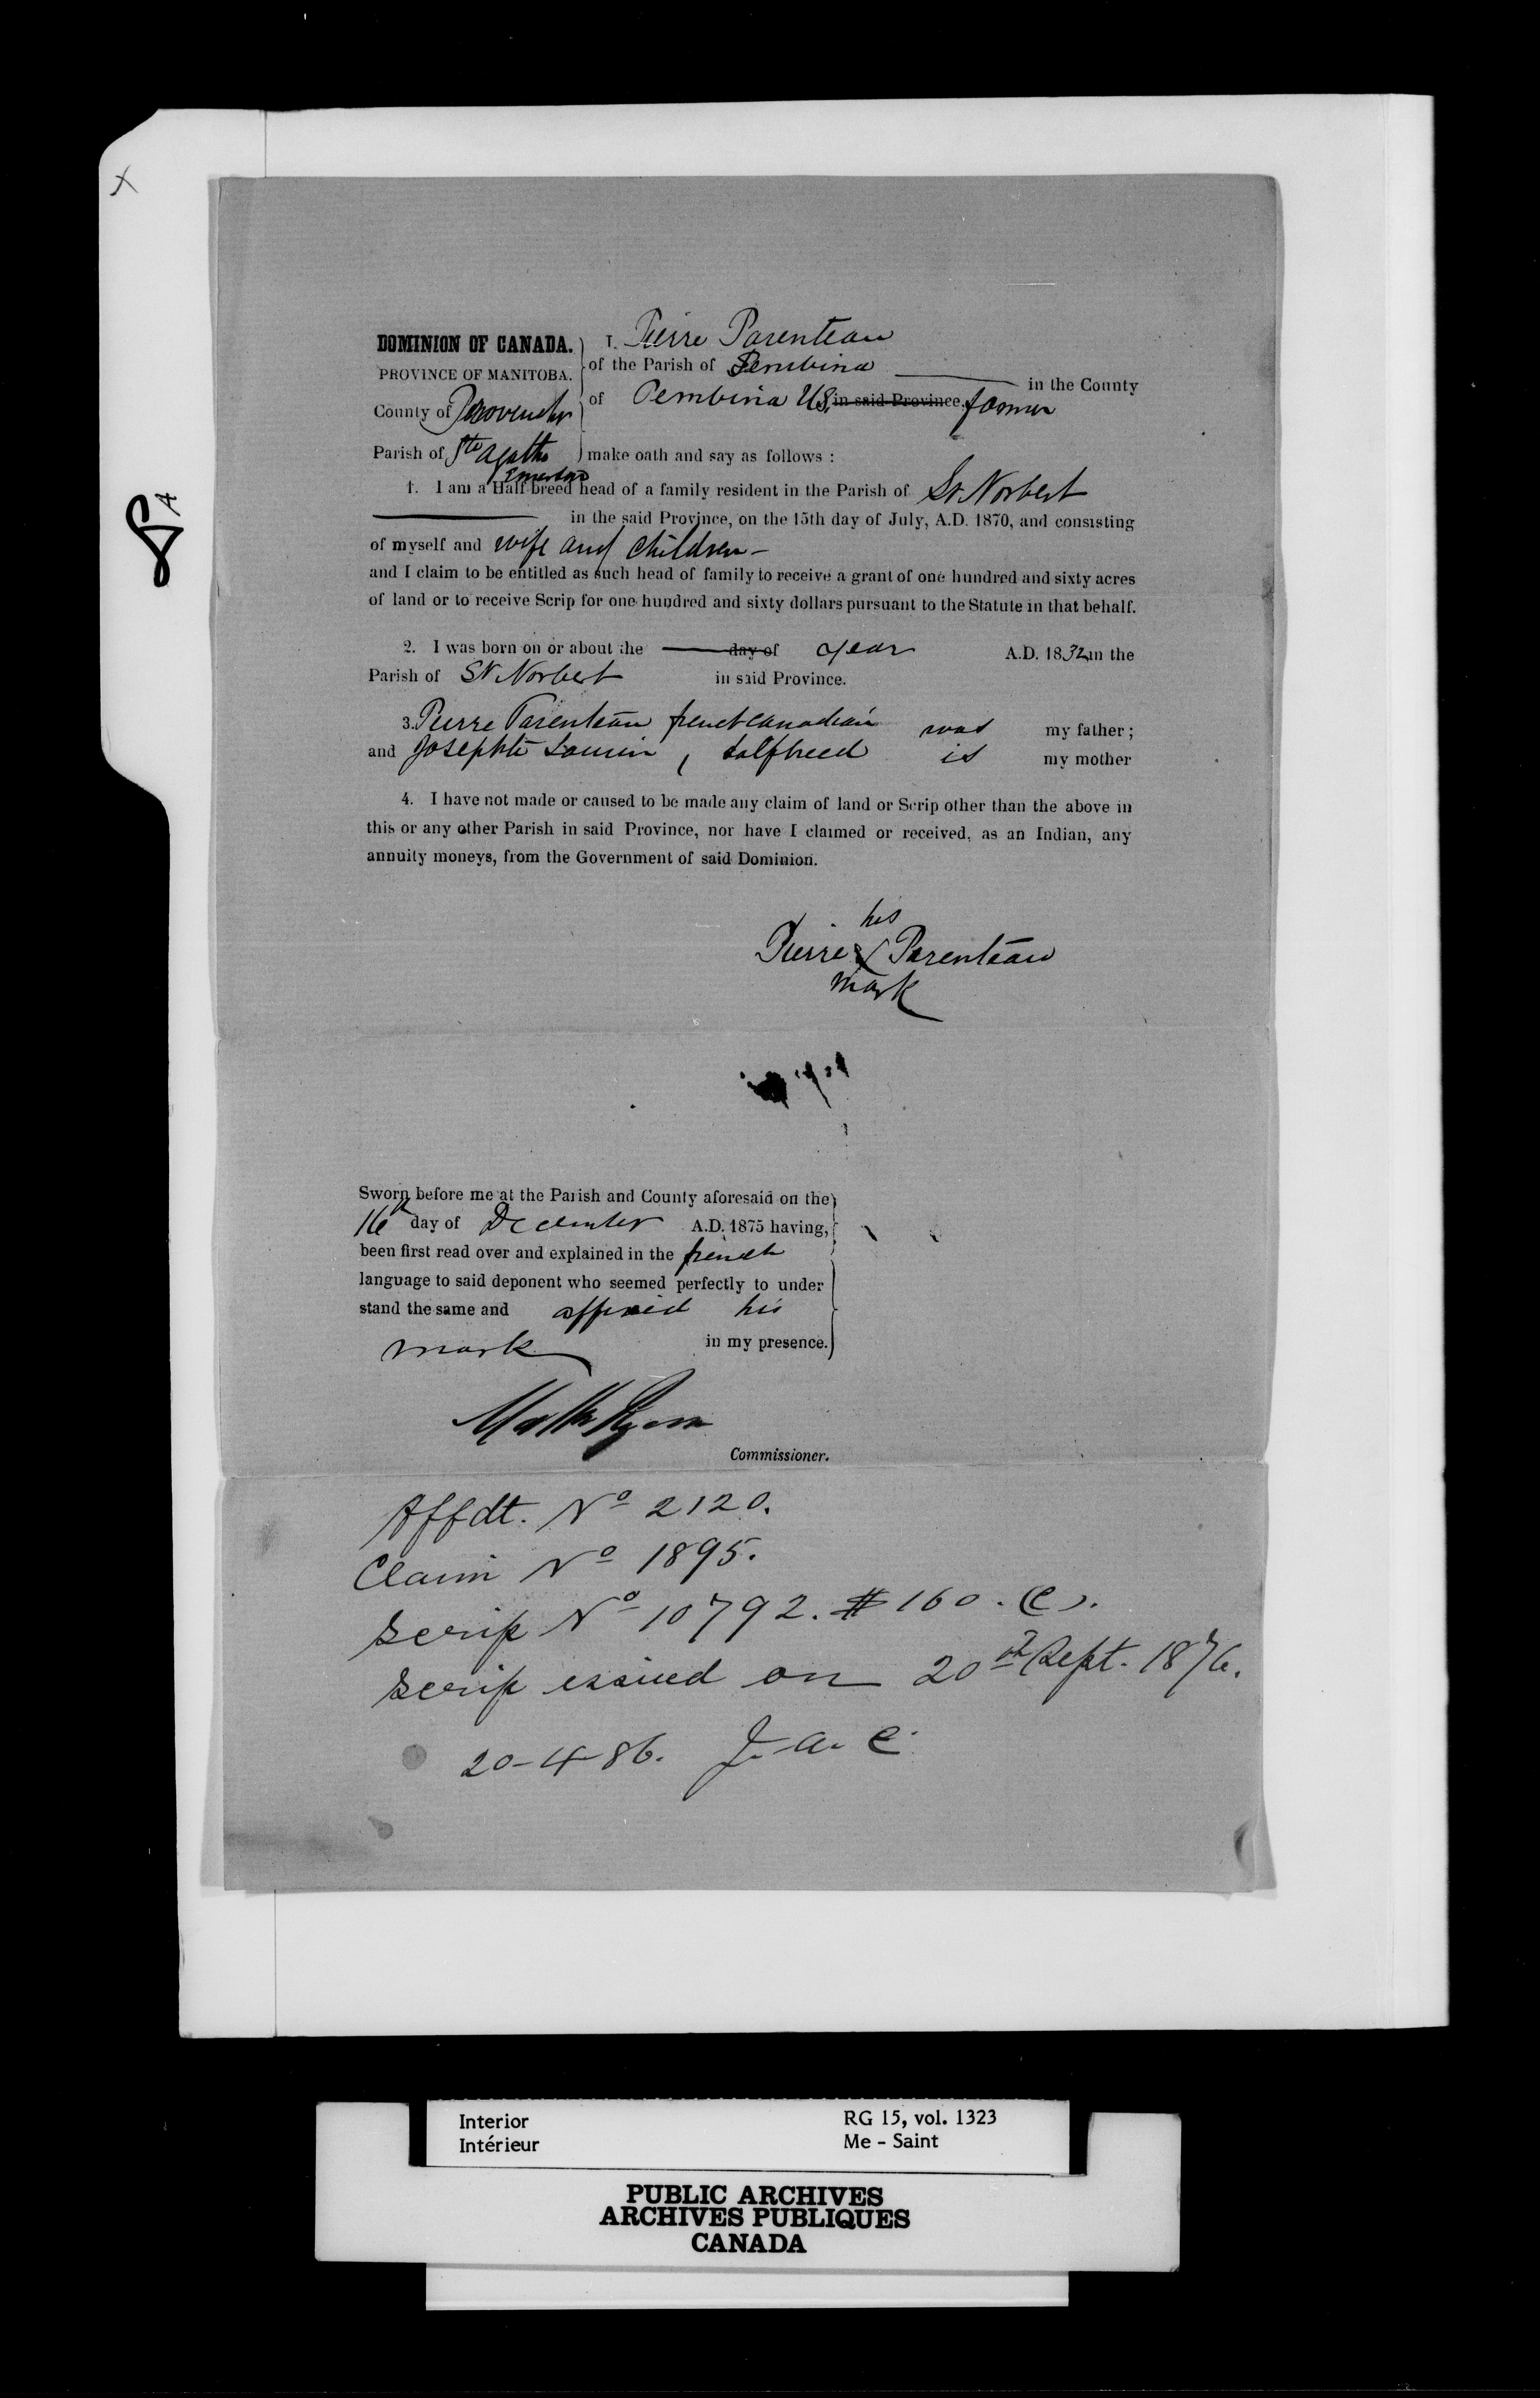 DOMINION OF CANADA.
PROVINCE OF MANITOBA.
County of Provencher
Parish of Ste Agathe
Emerson
I. Pierre Parenteau
of the Parish of Pembina in the County
of Pembina US, in said Province, farmer
make oath and say as follows :
1. I am a Half-breed head of a family resident in the Parish of St Norbert
in the said Province, on the 15th day of July, A.D. 1870, and consisting
of myself and wife and children –
and I claim to be entitled as such head of family to receive a grant of one hundred and sixty acres
of land or to receive Scrip for one hundred and sixty dollars pursuant to the Statute in that behalf.
2. I was born on or about the day of year A.D. 1832 in the
Parish of St Norbert in said Province.
3. Pierre Parenteau french canadian was my father ;
and Josephte , halfbreed is my mother
4. I have not made or caused to be made any claim of land or Scrip other than the above in
this or any other Parish in said Province, nor have I claimed or received, as an Indian, any
annuity moneys, from the Government of said Dominion.
his
Pierre X Parenteau
mark
Sworn before me at the Parish and County aforesaid on the
16th day of December A.D. 1875 having,
been first read over and explained in the french
language to said deponent who seemed perfectly to under
stand the same and affixed his
mark in my presence.
Matth Ryan
Commissioner.
Affdt. No 2120.
Claim No 1895.
Scrip No 10792. $160. (C).
Scrip issued on 20th Sept. 1876.
20-4-86. J. A. C.
X
A
Interior RG 15, vol. 1323
Intérieur Me - Saint
PUBLIC ARCHIVES
ARCHIVES PUBLIQUES
CANADA